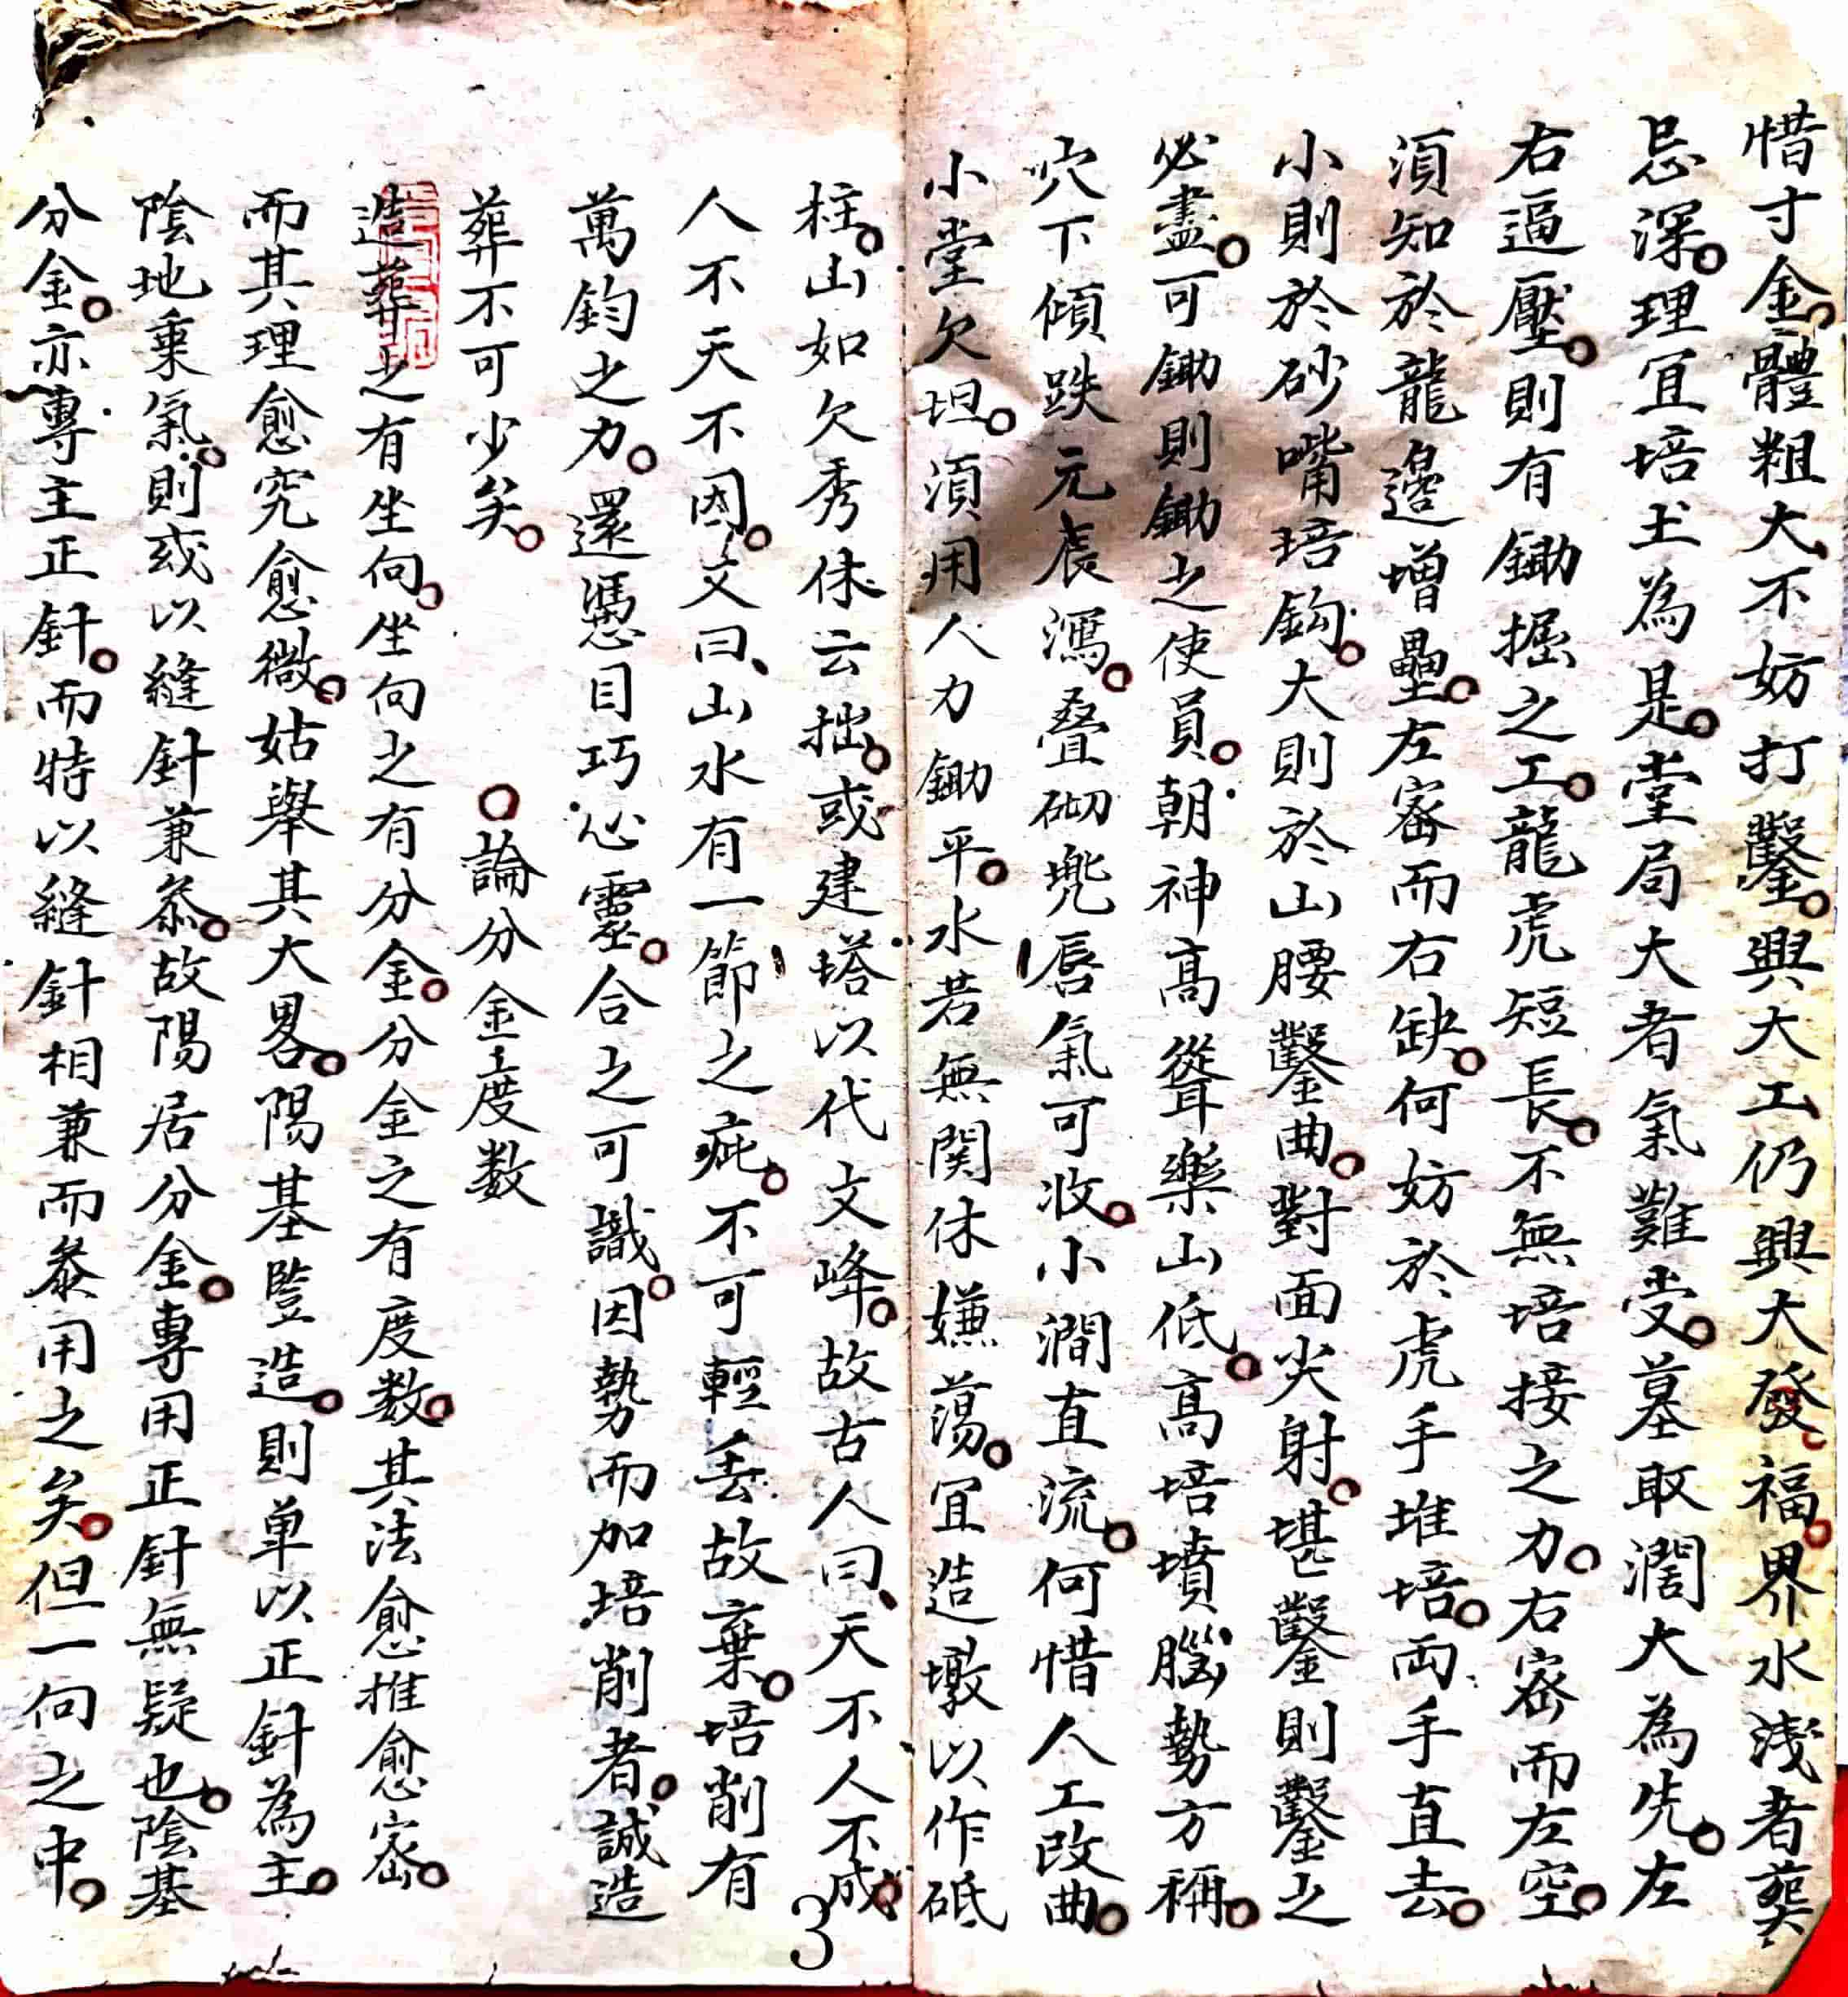 惜寸金體粗大不妨打鑿興大工仍興大發福界水淺者葬
忌深理宜培土為是堂局大者氣難受墓取濶大為先左
右逼壓則有鋤掘之工龍虎短長不無培接之力右密而左空
須知於龍邊增壘左密而右缺何妨於虎手堆培両手直去
小則於砂嘴培鈎大則於山腰鑿曲對面尖射堪鑿則鑿之
必盡可鋤則鋤之使員朝神高聳樂山低高培墳腦勢方稱
穴下傾跌元辰瀉叠砌兠唇氣可收小澗直流何惜人工改曲
小堂欠坦須用人力鋤平水若無関休嫌蕩宜造墩以作砥
柱山如欠秀休云拙或建塔以代文峰故古人曰天不人不成
人不天不因文曰山水有一節之疵不可輕丢故棄培削有
萬鈞之力還憑目巧心靈合之可識因勢而加培削者誠造
葬不可少矣 論分金度数
造葬之有坐向坐向之有分金分金之有度数其法愈推愈密
而其理愈究愈微姑舉其大畧陽基豎造則单以正針為主
陰地乗氣則或以縫針兼叅故陽居分金專用正針無疑也陰基
分金亦專主正針而特以縫針相兼而叅用之矣但一向之中
3